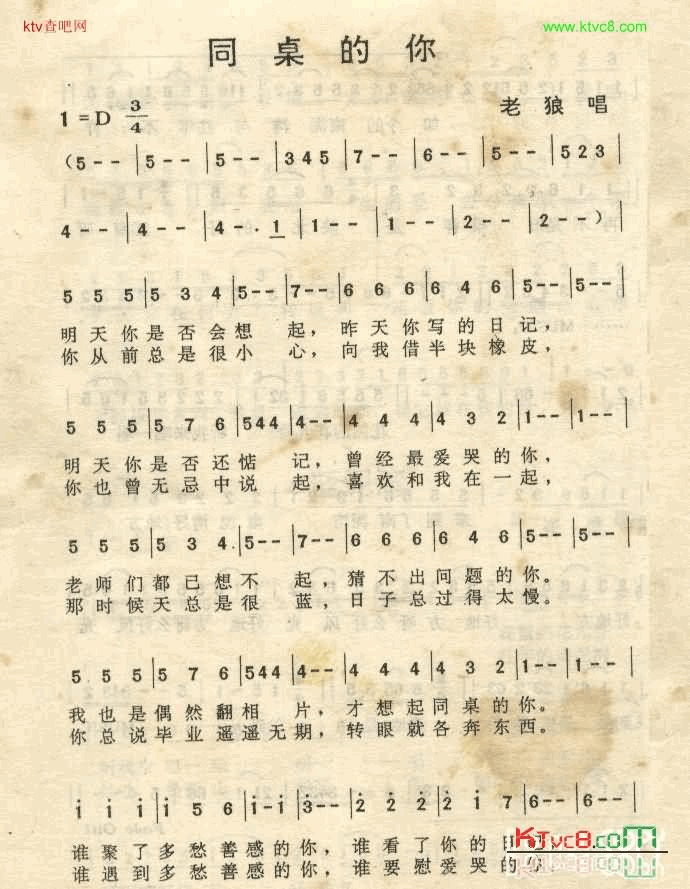 ktv查吧网
www.ktvc8.com
同桌的你
1=D 3/4
老狼唱
(5--|5--|5--|345|7--|6--|5--|523|
4--|4--|4-·1|1--|1--|2--|2--)|
555|534|5--|7--|666|646|5--|5--|
明天你是否会想起，昨天你写的日记，
你从前总是很小心，向我借半块橡皮，
555|576|544|4--|444|432|1--|1--|
明天你是否还惦记，曾经最爱哭的你，
你也曾无忌中说起，喜欢和我在一起，
555|534|5--|7--|666|646|5--|5--|
老师们都已想不起，猜不出问题的你。
那时候天总是很蓝，日子总过得太慢。
555|576|544|4--|444|432|1--|1--|
我也是偶然翻相片，才想起同桌的你。
你总说毕业遥遥无期，转眼就各奔东西。
i i i|i 5 6|i-i|3--|2 2 2|2 i 7|6--|6--|
谁聚了多愁善感的你，谁看了你的日
谁遇到多愁善感的你，谁要慰爱哭的你
KTvc8.com